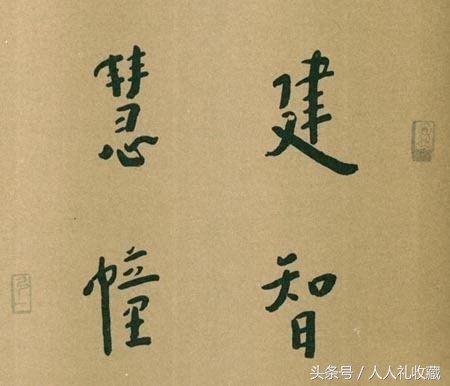 建智
慧幢
头条号/人人礼收藏